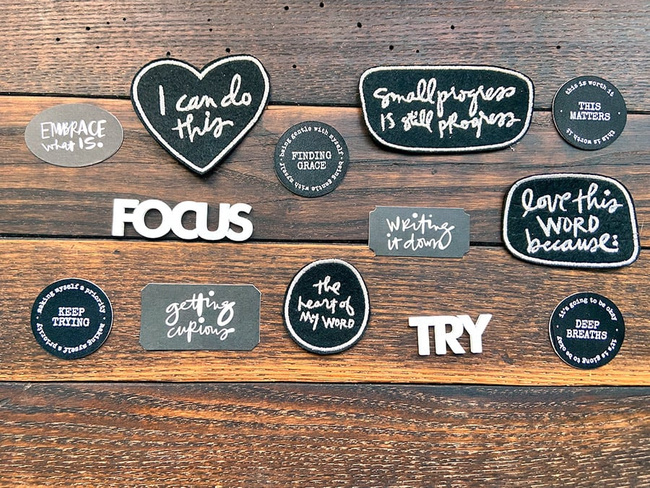 I can do
this
small progress
IS still pRogress
this is worth it
THIS
MATTERS
this is worth it
EMBRACE
what IS.
being gentle with myself
FINDING
GRACE
being gentle with myself
love this
WORD
because:
FOCUS
writing
it down
making myself a priority
KEEP
TRYING
making myself a priority
getting
curious
the
heart of
MY WORD
TRY
it's going to be okay
DEEP
BREATHS
it's going to be okay